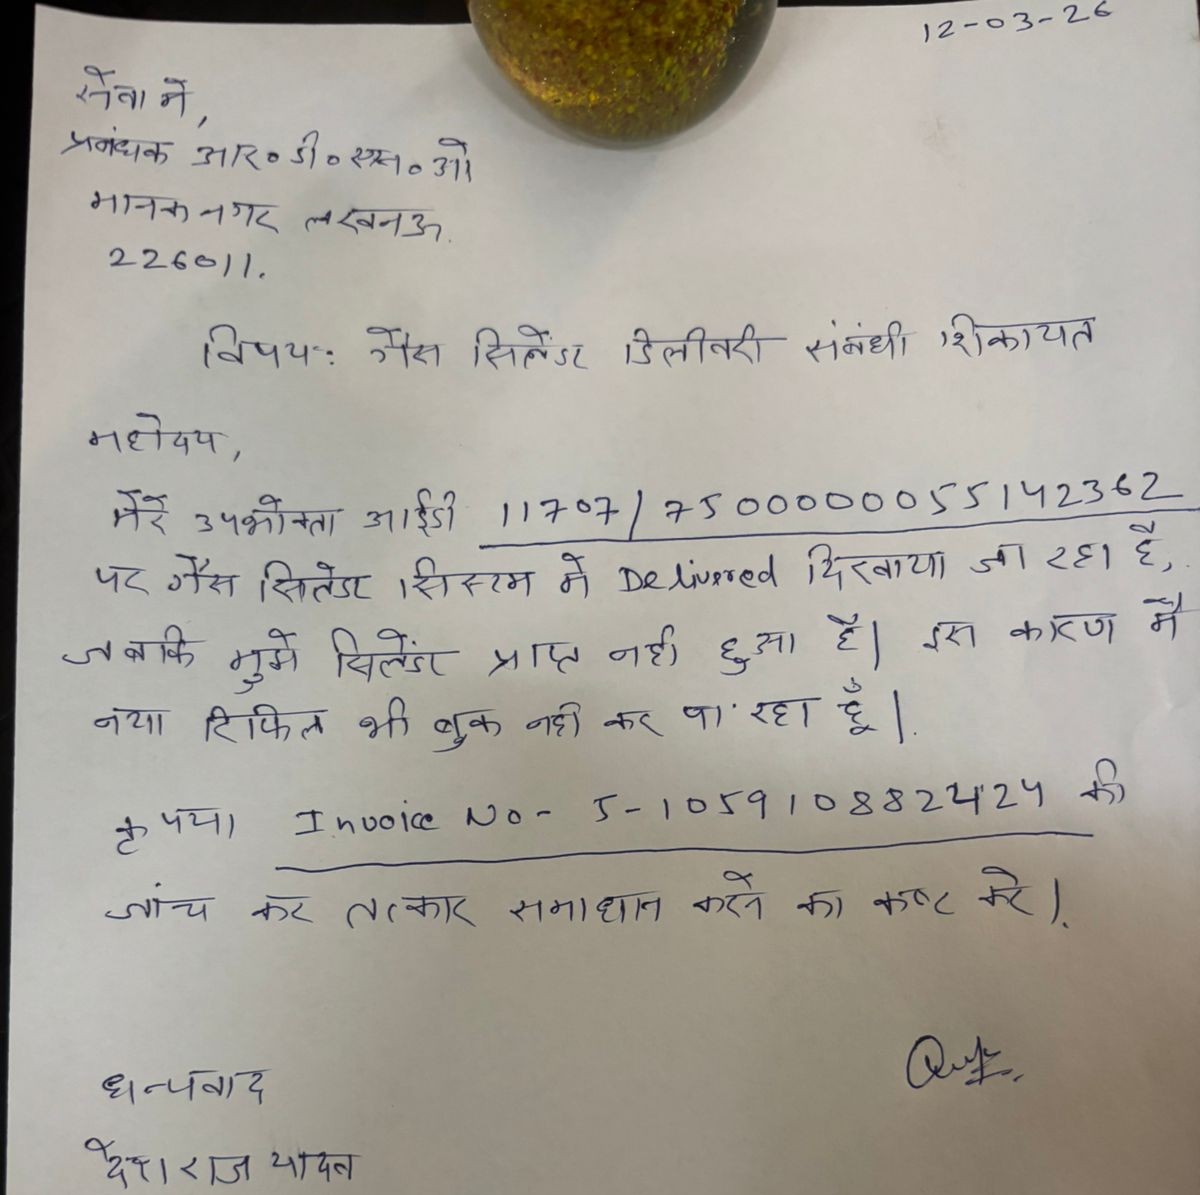 12-03-26
सेवा में,
प्रबंधक आर॰ डी॰ एस॰ ओ
मानक नगर लखनऊ.
226011.
विषय: गैस सिलेंडर डिलीवरी संबंधी शिकायत
महोदय,
मेरे उपभोक्ता आईडी 11707/7500000055142362
पर गैस सिलेंडर सिस्टम में Delivered दिखाया जा रहा है,
जबकि मुझे सिलेंडर प्राप्त नही हुआ है। इस कारण मैं
नया रिफिल भी बुक नही कर पा रहा हूँ।
कृपया Invoice No- 5-1059108824424 की
जांच कर तत्काल समाधान करने का कष्ट करे।
धन्यवाद
देशराज यादव